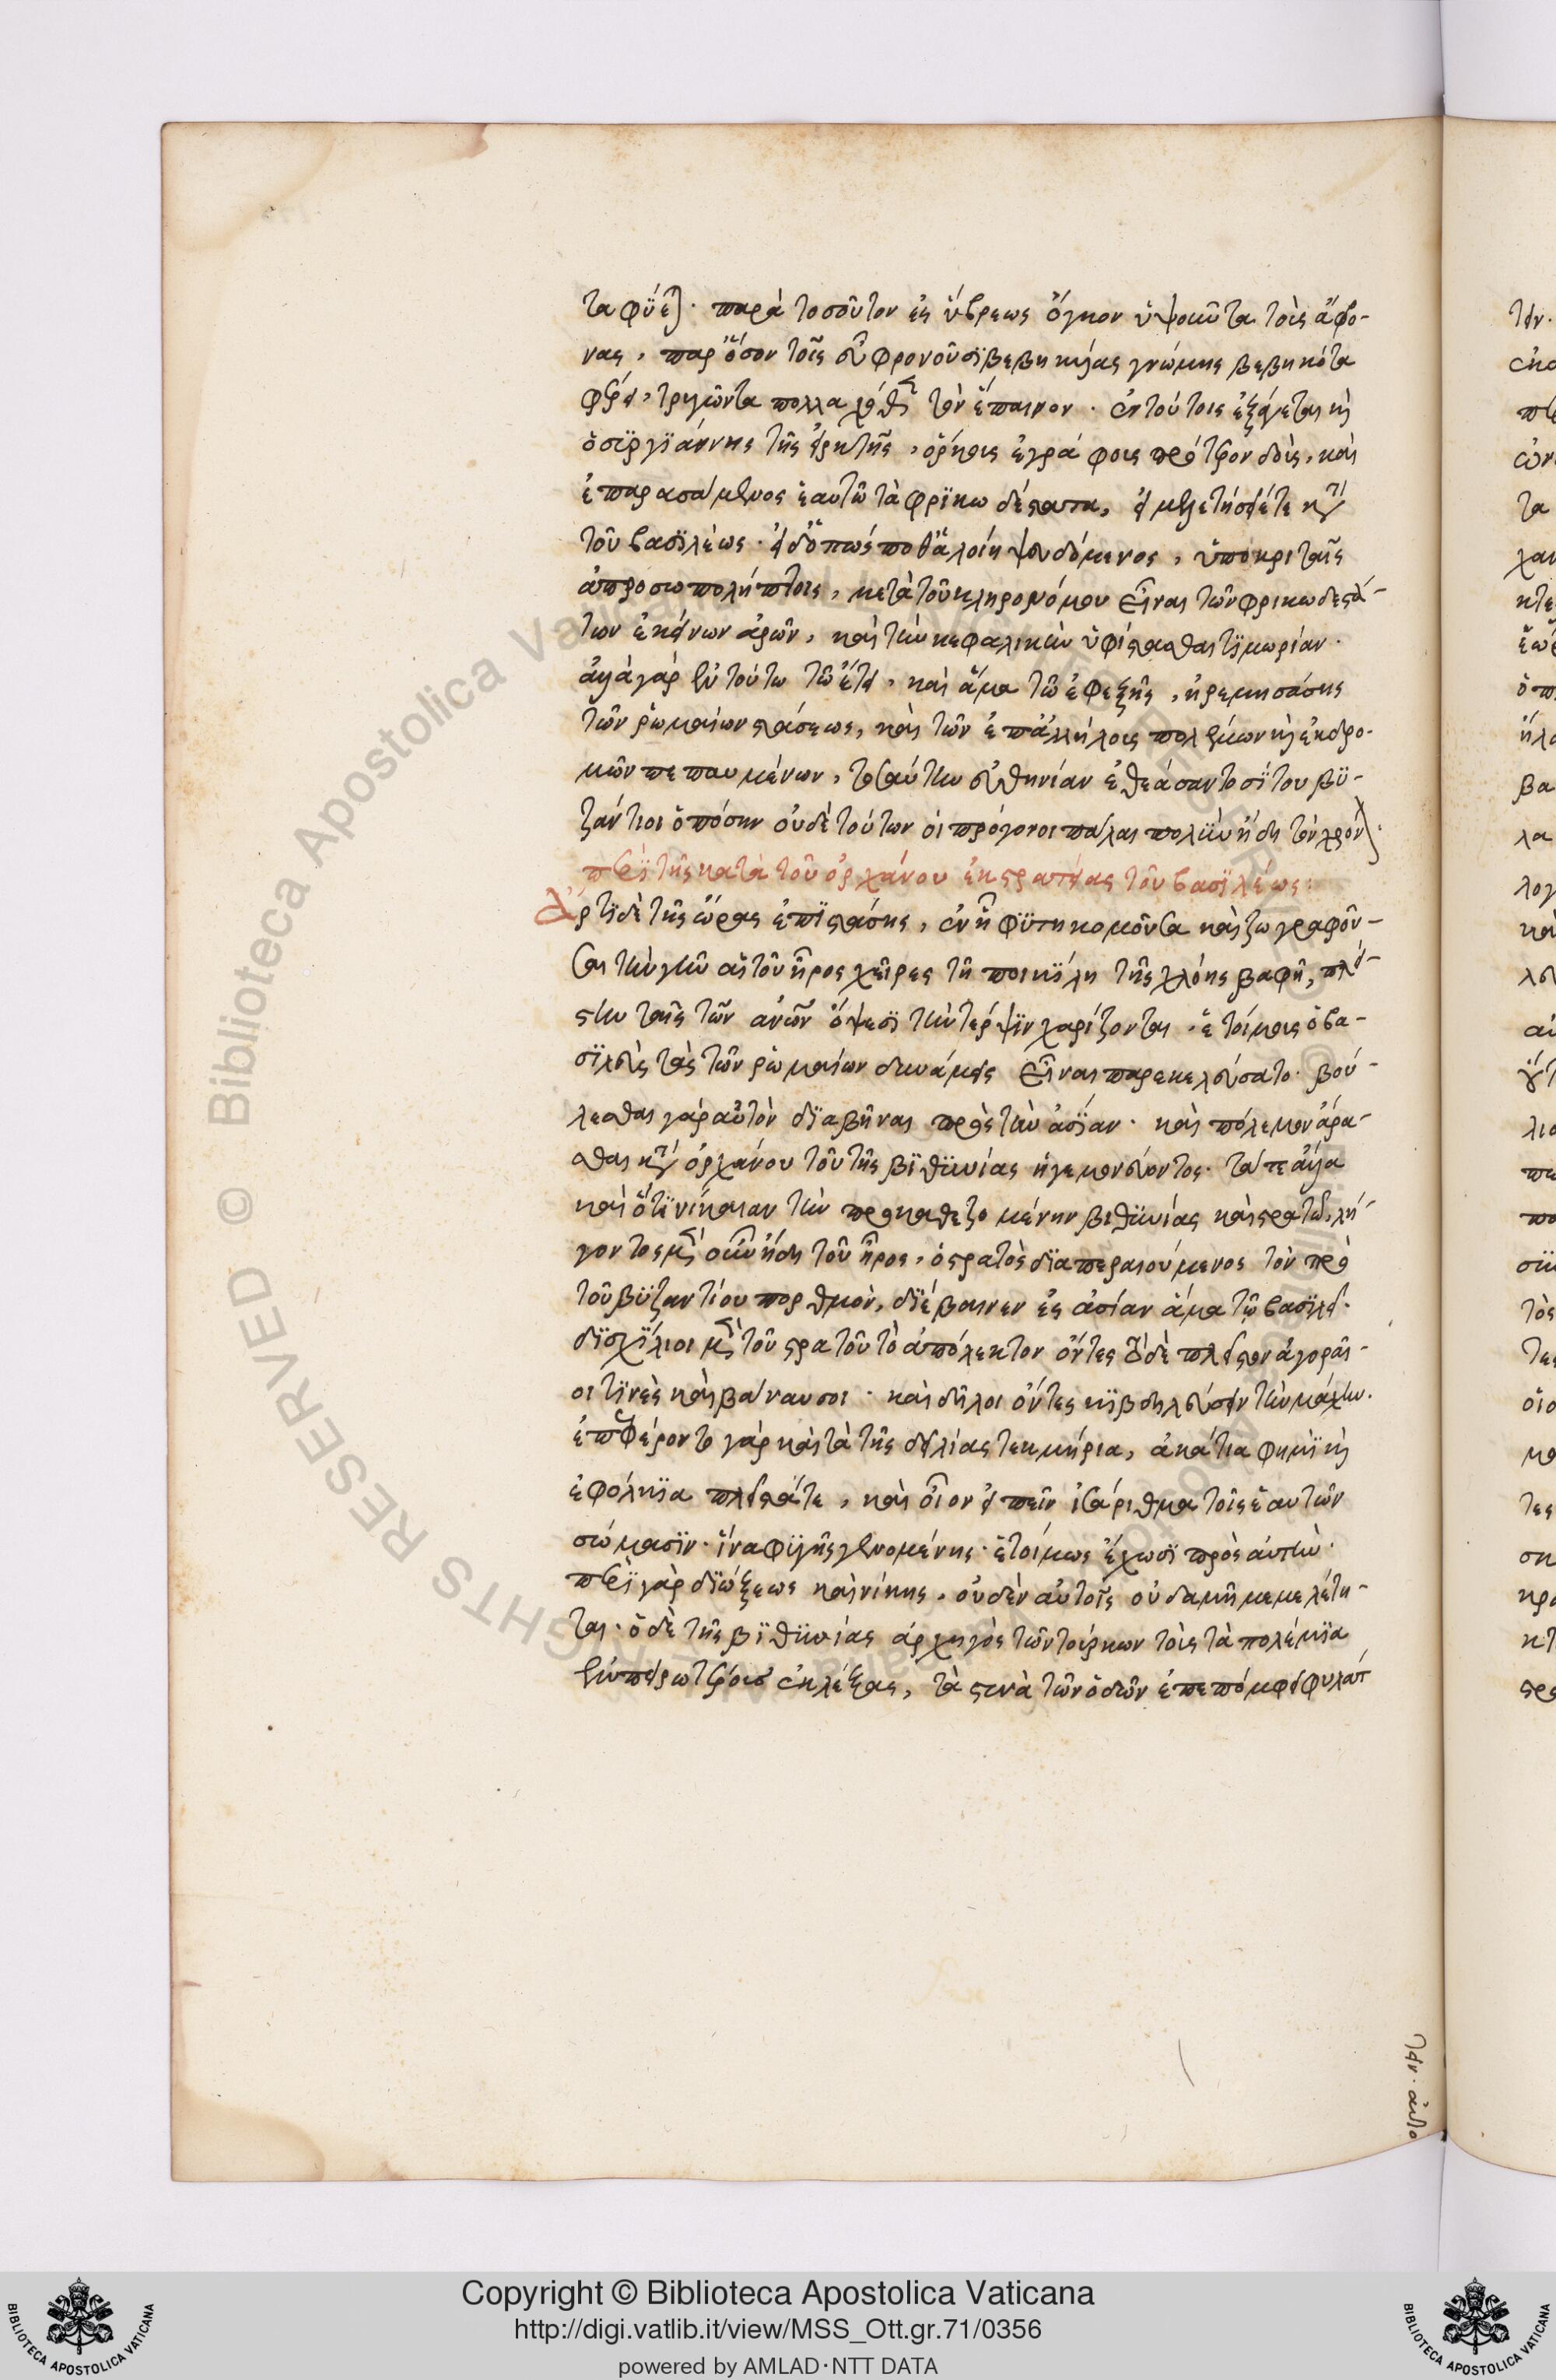 ταφύεται· παρὰ τοσοῦτον ἐς ὕβρεως ὄγκον ὑψοῦντα τοὺς ἄφρο-
νας, παρ' ὅσον τοῖς εὖ φρονοῦσι βεβηκυίας γνώμης βεβηκότα
φέρει, τρυγῶντα πολλαχόθεν τὸν ἔπαινον. ἐν τούτοις ἐξάγεται καὶ
ὁ συργιάννης τῆς εἱρκτῆς, ὅρκοις ἐγγράφοις πρότερον δοὺς, καὶ
ἐπαρασάμενος ἑαυτῷ τὰ φρικωδέστατα, εἰ μελετήσειέ τι κατὰ
τοῦ βασιλέως· εἰ δ' ὅπως ποθ' ἁλοίη ψευδόμενος, ὑποκριταῖς
ἀπροσωπολήπτοις, μετὰ τοῦ κληρονόμον εἶναι τῶν φρικωδεστά-
των ἐκείνων ἀρῶν, καὶ τὴν κεφαλικὴν ὑφίστασθαι τιμωρίαν.
ἀλλὰ γὰρ ἐν τούτῳ τῷ ἔτει, καὶ ἅμα τῷ ἐφεξῆς, ἠρεμησάσης
τῶν ῥωμαίων στάσεως, καὶ τῶν ἐπ' ἀλλήλοις πολέμων καὶ ἐκδρο-
μῶν πεπαυμένων, τοσαύτην εὐθηνίαν ἐθεάσαντο σίτου βυ-
ζάντιοι ὁπόσην οὐδὲ τούτων οἱ πρόγονοι πάλαι πολὺν ἤδη τὸν χρόνον.
περὶ τῆς κατὰ τοῦ ὀρχάνου ἐκστρατείας τοῦ βασιλέως:
Ἄρτι δὲ τῆς ὥρας ἐπιστάσης, ἐν ᾗ φυτηκομοῦσα καὶ ζωγραφοῦ-
σαι τὴν γῆν αἱ τοῦ ἦρος χεῖρες τῇ ποικίλῃ τῆς χλόης βαφῇ, πλεί-
στην ταῖς τῶν ἀνων ὄψεσι τὴν τέρψιν χαρίζονται. ἑτοίμους ὁ βα-
σιλεὺς τὰς τῶν ῥωμαίων δυνάμεις εἶναι παρεκελεύσατο· βού-
λεσθαι γὰρ αὐτὸν διαβῆναι πρὸς τὴν ἀσίαν· καὶ πόλεμον ἄρα-
σθαι κατὰ ὀρχάνου τοῦ τῆς βιθυνίας ἡγεμονεύοντος· τά τε ἄλλα
καὶ ὅτι νίκαιαν τὴν προκαθεζομένην βιθυνίας καὶ κρατεῖ. λή-
γοντος μὲν οὖν ἤδη τοῦ ἦρος, ὁ στρατὸς διαπεραιούμενος τὸν πρὸ
τοῦ βυζαντίου πορθμὸν, διέβαινεν ἐς ἀσίαν ἅμα τῷ βασιλεῖ.
δισχίλιοι μὲν τοῦ στρατοῦ τὸ ἀπόλεκτον ὄντες τὸ δὲ πλεῖστον ἀγοραῖ-
οί τινὲς καὶ βάναυσοι· καὶ δῆλοι ὄντες κιβδηλεύσειν τὴν μάχην.
ἐπεφέροντο γὰρ καὶ τὰ τῆς δειλίας τεκμήρια, ἀκάτια φημὶ καὶ
ἐφόλκια πλεῖστά τε, καὶ οἷον εἰπεῖν ἰσάριθμα τοῖς ἑαυτῶν
σώμασιν· ἵνα φυγῆς γενομένης· ἑτοίμως ἔχωσι πρὸς αὐτήν·
περὶ γὰρ διώξεως καὶ νίκης, οὐδὲν αὐτοῖς οὐδαμῆ μεμελέτη-
ται· ὁ δὲ τῆς βιθυνίας ἀρχηγὸς τῶν τούρκων τοὺς τὰ πολέμια
ἐμπειροτέρους ἐκλέξας, τὰ στενὰ τῶν ὁδῶν ἐπεπόμφει φυλάτ